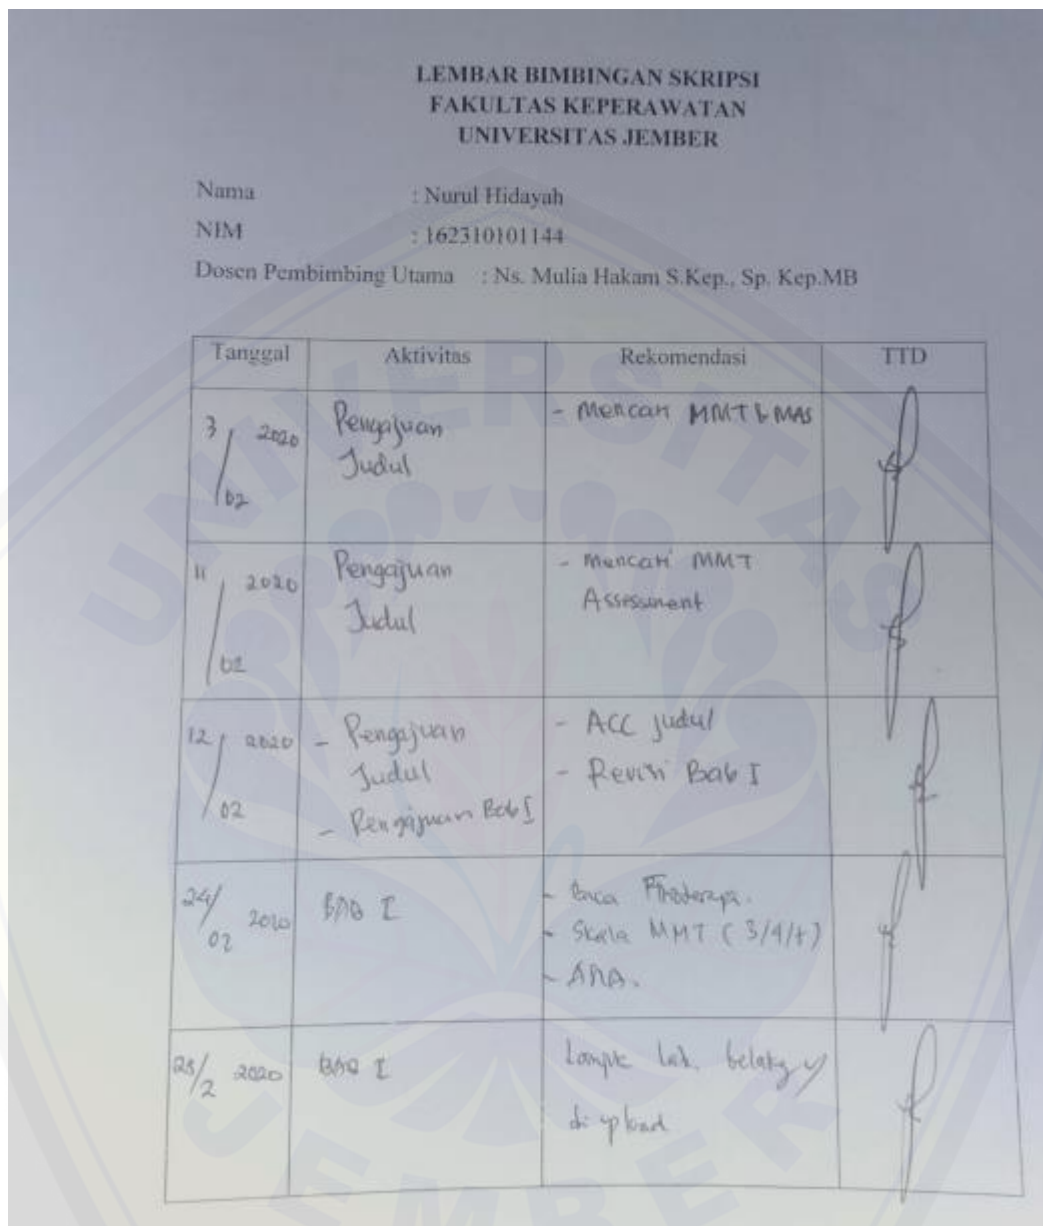 LEMBAR BIMBINGAN SKRIPSI
FAKULTAS KEPERAWATAN
UNIVERSITAS JEMBER
Nama : Nurul Hidayah
NIM : 162310101144
Dosen Pembimbing Utama : Ns. Mulia Hakam S.Kep., Sp. Kep.MB
Tanggal Aktivitas Rekomendasi TTD
3/02 2020
Pengajuan
Judul
- Mencari MMT & MAS
11/02 2020
Pengajuan
Judul
- Mencari MMT
Assessment
12/02 2020
- Pengajuan
Judul
- Pengajuan Bab I
- ACC judul
- Revisi Bab I
24/02 2020
BAB I
- Baca
- Skala MMT (3/4/+)
-
28/2 2020
BAB I
belakg
di upload
UNIVERSITAS
JEMBER